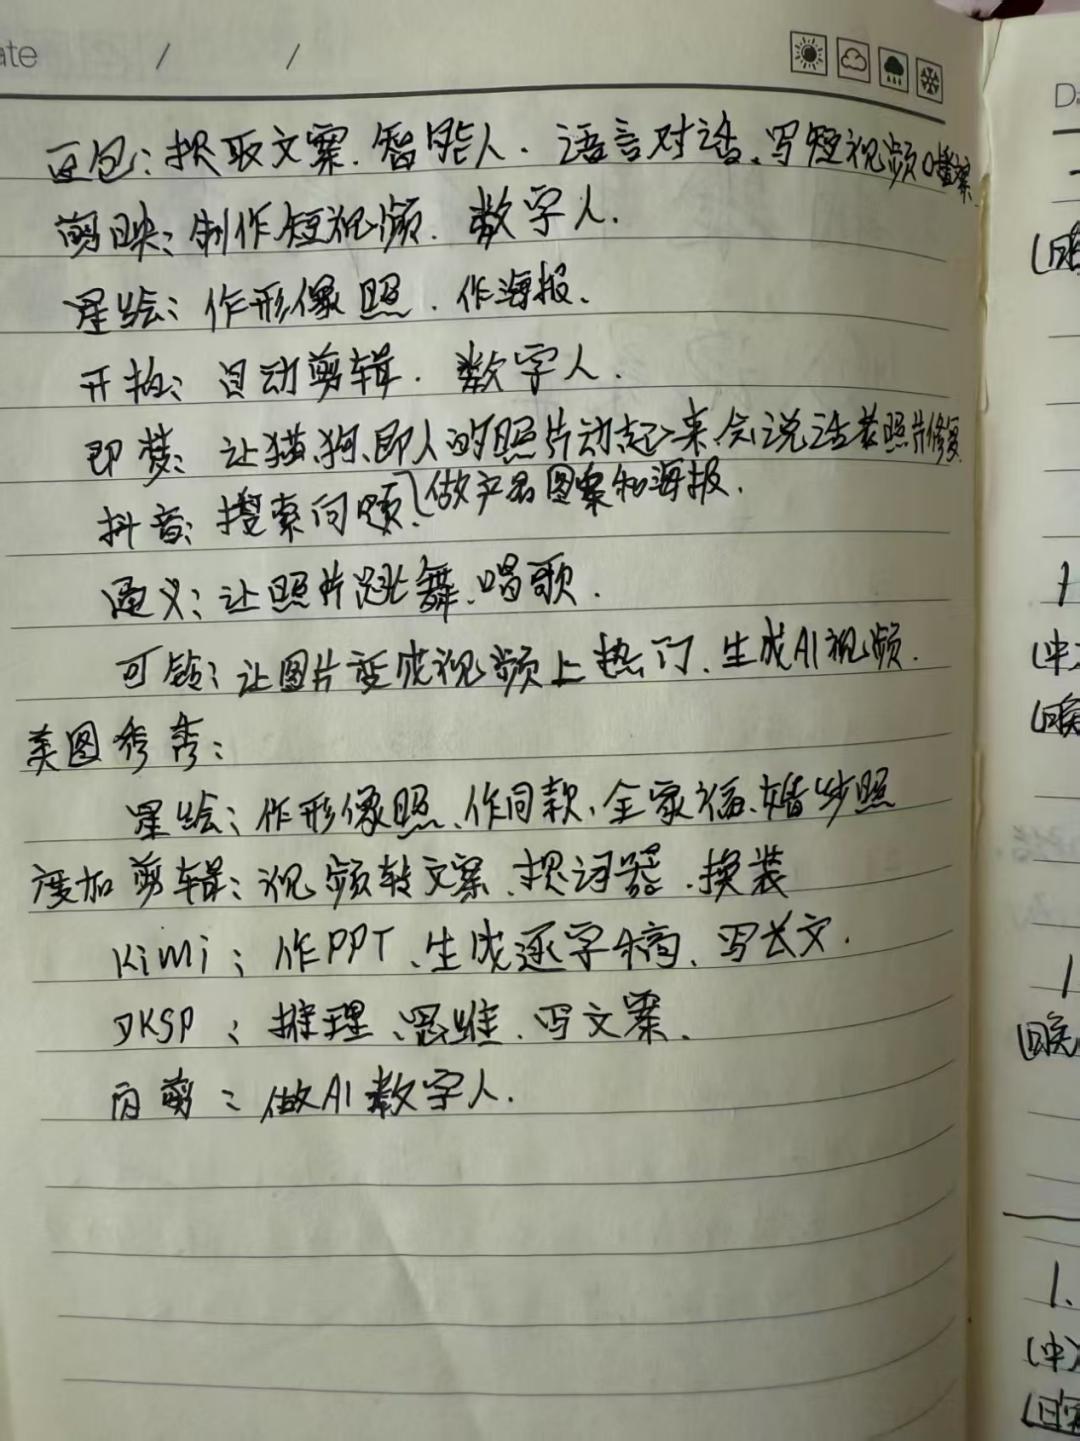 ate / /
豆包:提取文案.智能人.语言对话、写短视频口播案
剪映:制作短视频.数字人.
星绘:作形像照.作海报.
开拍:自动剪辑.数字人.
即梦:让猫、狗、即人的照片动起来,会说话老照片修复
做产品图案和海报.
抖音:搜索问题.
通义:让照片跳舞、唱歌.
可铃:让图片变成视频上热门、生成AI视频.
美图秀秀:
星绘:作形像照、作同款、全家福、婚纱照
度加剪辑:视频转文案、提词器.换装
KiMi:作PPT、生成逐字稿、写长文.
DKSP:推理、思维、写文案.
闪剪:做AI数字人.